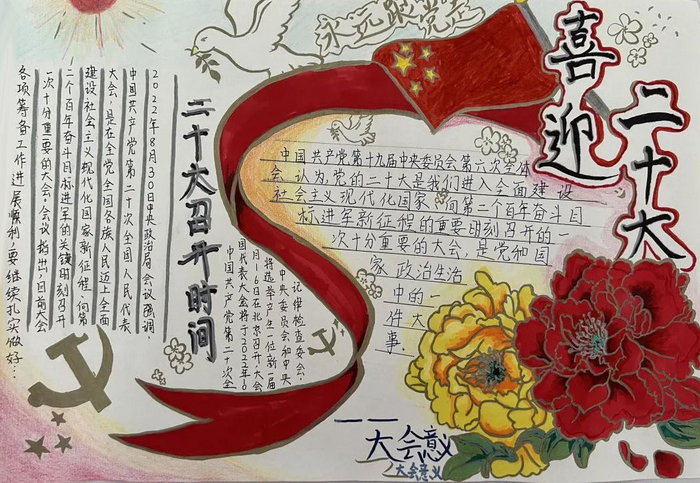 永远跟党走
喜迎
二十大
二十大召开时间
2022年8月30日中央政治局会议强调
中国共产党第二十次全国人民代表
大会,是在全党全国各族人民迈上全面
建设社会主义现代化国家新征程,向第
二个百年奋斗目标进军的关键时刻召开
一次十分重要的大会。会议指出,目前大会
各项筹备工作进展顺利,要继续扎实做好…
中国共产党第十九届中央委员会第六次全体
会,认为,党的二十大是我们进入全面建设
社会主义现代化国家、向第二个百年奋斗目
标进军新征程的重要时刻召开的一
次十分重要的大会,是党和国
家政治生活
中的一
件大
事。
中国共产党第二十次全
国代表大会将于2022年10
月16日在北京召开。大会
将选举产生一位新一届
中央委员会和中央
记律检查委会。
大会意义
大会意义